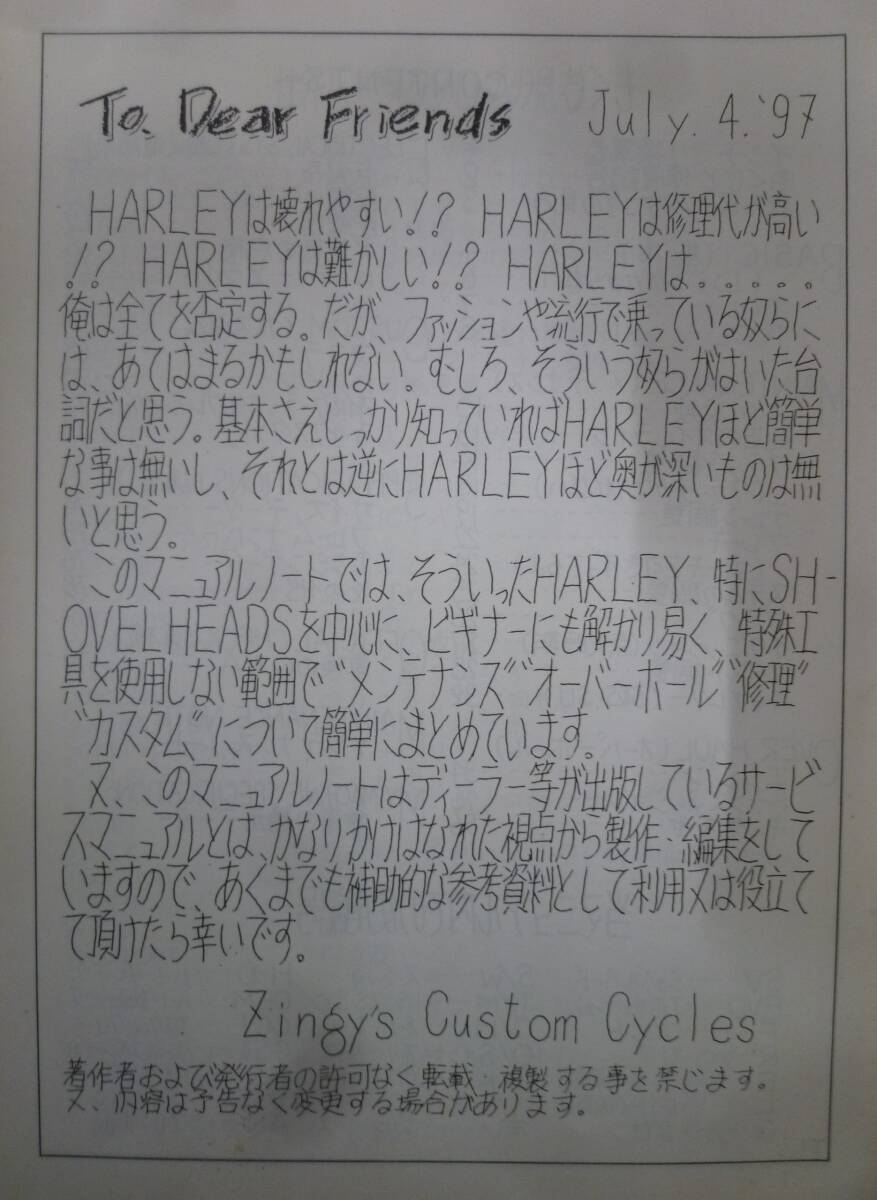 To. Dear Friends July. 4. '97
HARLEYは壊れやすい!? HARLEYは修理代が高い
!? HARLEYは難かしい!? HARLEYは.....
俺は全てを否定する。だが、ファッションや流行で乗っている奴らに
は、あてはまるかもしれない。むしろ、そういう奴らがはいた台
詞だと思う。基本さえしっかり知っていればHARLEYほど簡単
な事は無いし、それとは逆にHARLEYほど奥が深いものは無
いと思う。
このマニュアルノートでは、そういったHARLEY、特にSH-
OVELHEADSを中心に、ビギナーにも解かり易く、特殊工
具を使用しない範囲で"メンテナンス""オーバーホール""修理"
"カスタム"について簡単にまとめています。
又、このマニュアルノートはディーラー等が出版しているサービ
スマニュアルとは、かなりかけはなれた視点から製作・編集をして
いますので、あくまでも補助的な参考資料として利用又は役立て
て頂けたら幸いです。
Zingy's Custom Cycles
著作者および発行者の許可なく転載・複製する事を禁じます。
又、内容は予告なく変更する場合があります。